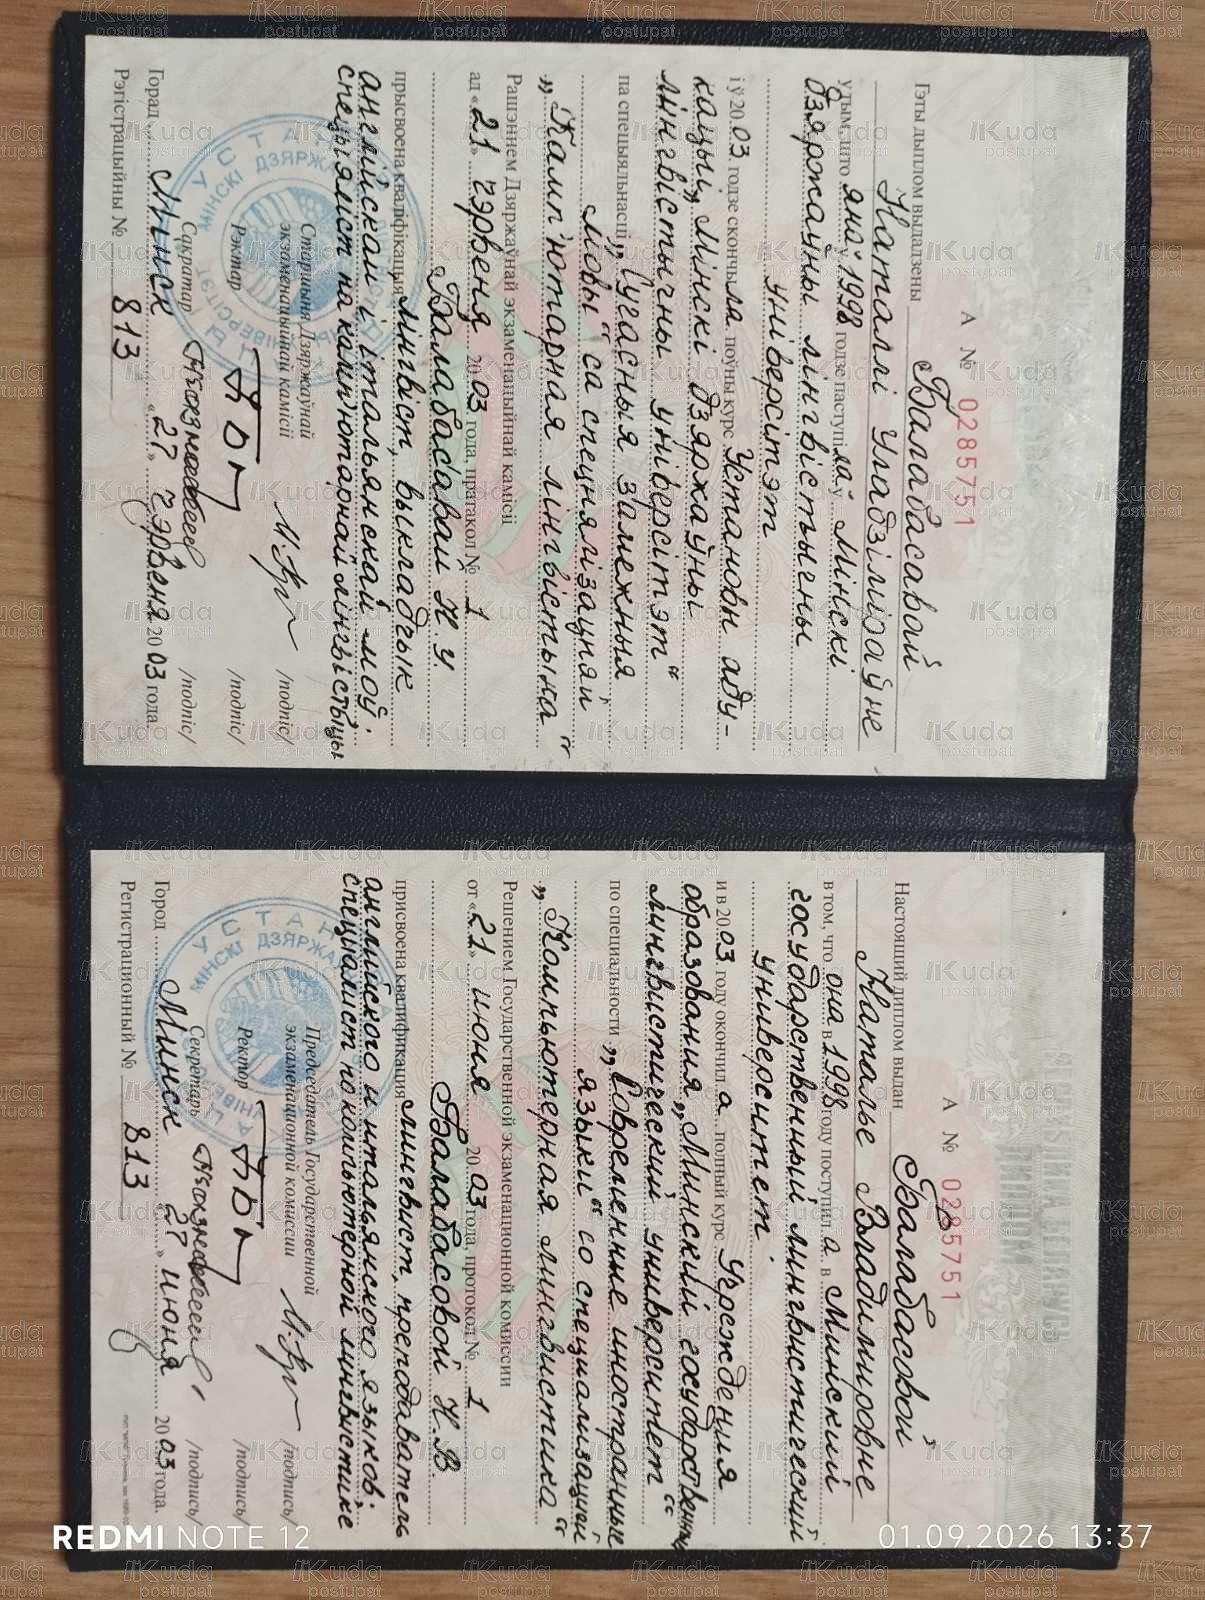 А № 0285751
Гэты дыплом выдадзены Балабасавай
Наталлі Уладзіміраўне
у тым, што яна ў 1998 годзе паступіла ў Мінскі
дзяржаўны лінгвістычны
універсітэт
і ў 2003 годзе скончыла поўны курс Установы аду-
кацыі „Мінскі дзяржаўны
лінгвістычны універсітэт“
па спецыяльнасці „Сучасныя замежныя
мовы“ са спецыялізацыяй
„Камп'ютарная лінгвістыка“
Рашэннем Дзяржаўнай экзаменацыйнай камісіі
ад «21» чэрвеня 2003 года, пратакол № 1
Балабасавай Н.У
прысвоена кваліфікацыя лінгвіст, выкладчык
англійскай і італьянскай моў.
спецыяліст па камп'ютарнай лінгвістыцы
Старшыня Дзяржаўнай
экзаменацыйнай камісіі /подпіс/
Рэктар /подпіс/
Сакратар /подпіс/
Горад Мінск «27» чэрвеня 2003 года.
Рэгістрацыйны № 813
РЭСПУБЛІКА БЕЛАРУСЬ
ДЫПЛОМ
А № 0285751
Настоящий диплом выдан Балабасовой
Наталье Владимировне
в том, что она в 1998 году поступила в Минский
государственный лингвистический
университет
и в 2003 году окончила полный курс Учреждения
образования „Минский государственный
лингвистический университет“
по специальности „Современные иностранные
языки“ со специализацией
„Компьютерная лингвистика“
Решением Государственной экзаменационной комиссии
от «21» июня 2003 года, протокол № 1
Балабасовой Н.В
присвоена квалификация лингвист, преподаватель
английского и итальянского языков.
специалист по компьютерной лингвистике
Председатель Государственной
экзаменационной комиссии /подпись/
Ректор /подпись/
Секретарь /подпись/
Город Минск «27» июня 2003 года.
Регистрационный № 813
REDMI NOTE 12
01.09.2026 13:37